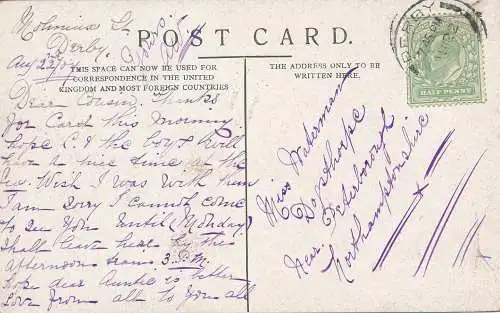 Molineux St
Derby.
Aug 22/04
POST CARD.
THIS SPACE CAN NOW BE USED FOR
CORRESPONDENCE IN THE UNITED
KINGDOM AND MOST FOREIGN COUNTRIES
THE ADDRESS ONLY TO BE
WRITTEN HERE.
Dear Cousin. Thanks
for Card this Morning
hope C & the boys will
have a nice time at the
Sea. Wish I was with them
I am sorry I cannot come
to see you until (Monday)
shall leave here by the
afternoon train 3.P.M.
hope dear Auntie is better
Love from all to you all
Miss Waterman
Dogsthorpe
Near Peterborough
Northamptonshire
DERBY
HALF PENNY